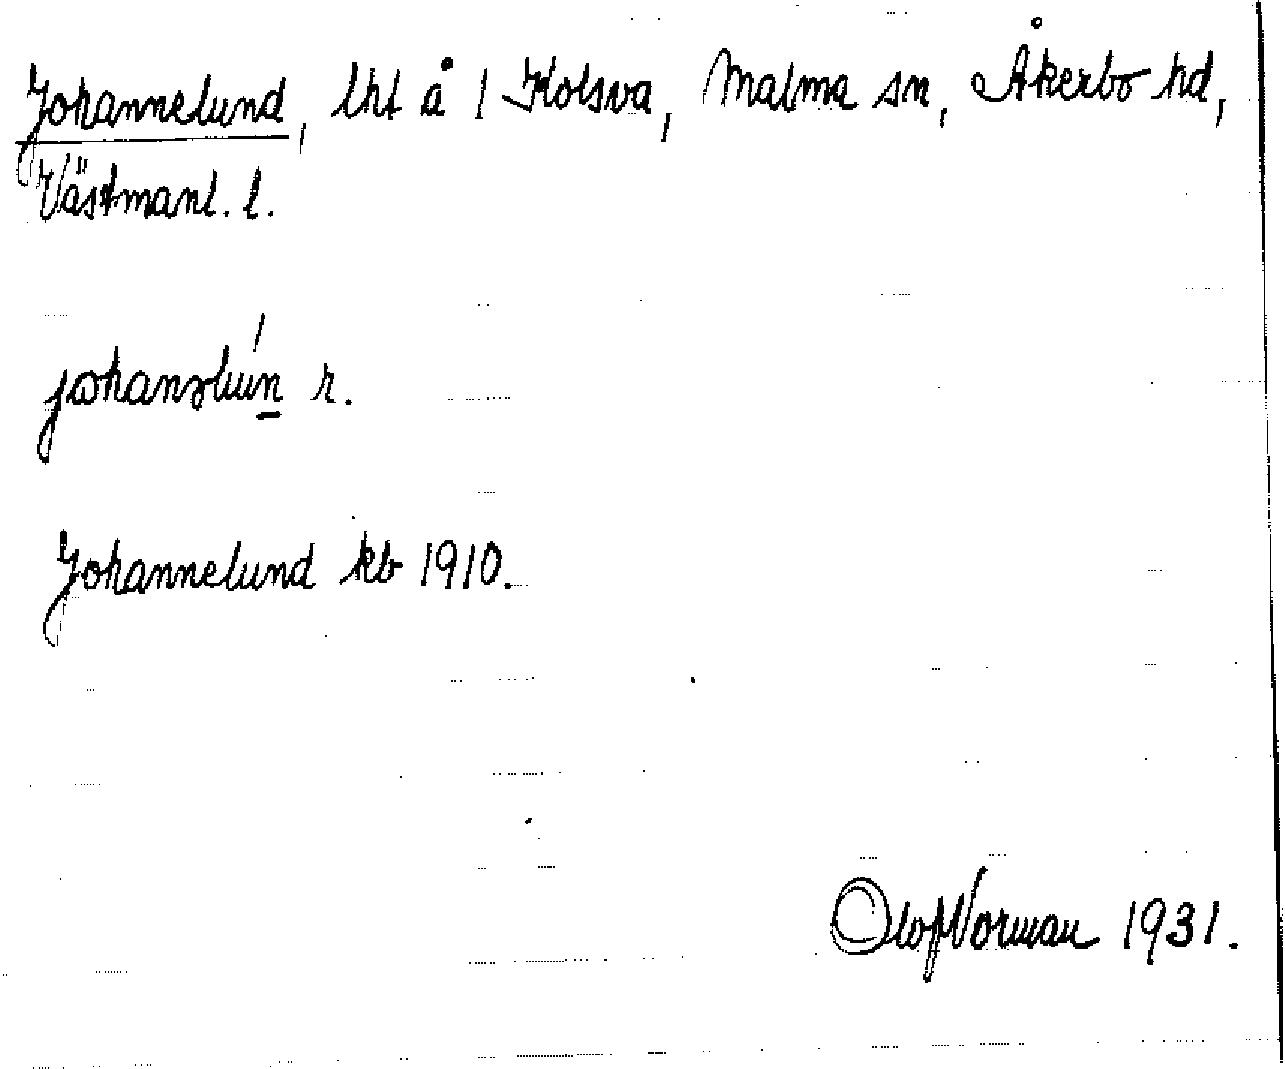 Johannelund, lht å 1 Kolsva, Malma sn, Åkerbo hd,
Västmanl. l.
r.
Johannelund kb 1910.
Olof Norman 1931.